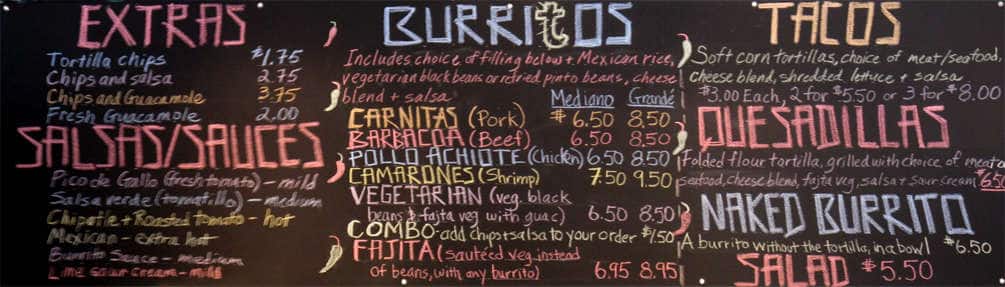 EXTRAS
Tortilla chips $1.75
Chips and salsa 2.75
Chips and Guacamole 3.75
Fresh Guacamole 2.00
SALSAS/SAUCES
Pico de Gallo (fresh tomato) - mild
Salsa verde (tomatillo) - medium
Chipotle + Roasted Tomato - hot
Mexican - extra hot
Burrito Sauce - medium
Lime sour cream - mild
BURRITOS
Includes choice of filling below + Mexican rice,
vegetarian black beans or refried pinto beans, cheese
blend + salsa
Mediano Grande
CARNITAS (Pork) $6.50 8.50
BARBACOA (Beef) 6.50 8.50
POLLO ACHIOTE (Chicken) 6.50 8.50
CAMARONES (Shrimp) 7.50 9.50
VEGETARIAN (veg. black
beans & fajita veg with guac) 6.50 8.50
COMBO- add chips + salsa to your order $1.50
FAJITA (sautéed veg. instead
of beans, with any burrito) 6.95 8.95
TACOS
Soft corn tortillas, choice of meat/seafood,
cheese blend, shredded lettuce + salsa
$3.00 Each, 2 for $5.50 or 3 for $8.00
QUESADILLAS
Folded flour tortilla, grilled with choice of meat or
seafood, cheese blend, fajita veg, salsa + sour cream $6.50
NAKED BURRITO
A burrito without the tortilla, in a bowl $6.50
SALAD $5.50